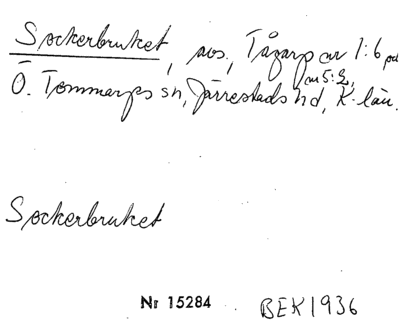 Sockerbruket, avs., Tågarp av 1:6 på
nu 5:2,
Ö. Tommarps sn, Järrestads hd, K. län.
Sockerbruket
Nr 15284 BEK 1936